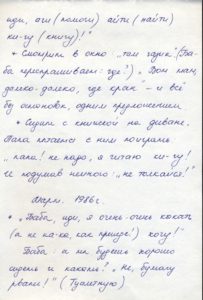 иди, аги (помоги) айти (найти)
ки-гу (книгу)!"
* Смотрит в окно „там гадик" (Ба-
ба переспрашивает: где?) „Вон там,
далеко-далеко, где кран" - и всё
без остановок, одним предложением.
* Сидит с книжкой на диване.
Папа пытается с ним поиграть
„папа! не надо, я читаю ки-гу!
и подумав немного: „не толкайся!"
1986г.
* „Баба, иди, я очень-очень какать
(а не ка-ка, как прежде!) хочу!"
Баба: а ты будешь хорошо
сидеть и какать? „Не, бумагу
рвать!" (Туалетную)